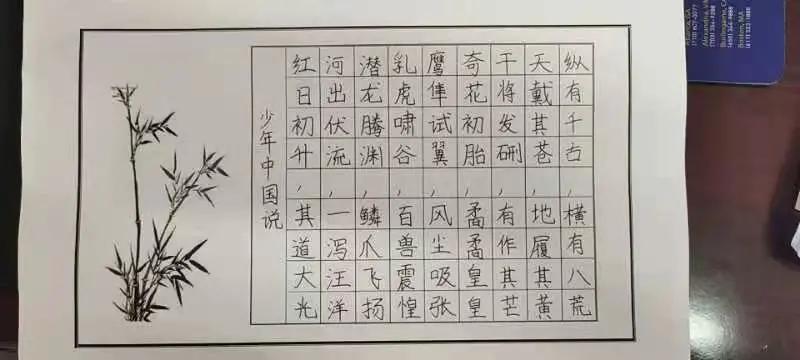 少年中国说
红日初升，其道大光
河出伏流，一泻汪洋
潜龙腾渊，鳞爪飞扬
乳虎啸谷，百兽震惶
鹰隼试翼，风尘吸张
奇花初胎，矞矞皇皇
干将发硎，有作其芒
天戴其苍，地履其黄
纵有千古，横有八荒
Burlingame, CA
Boston, MA